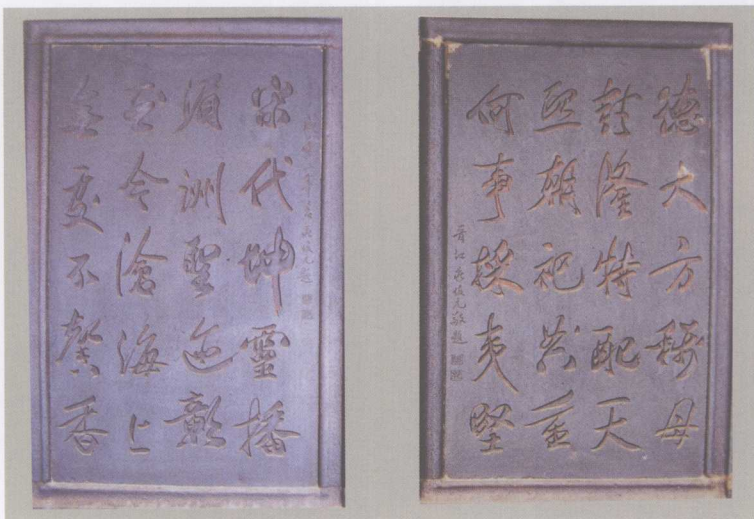 德大方稱母
封隆特配天
熙朝祀典重
何事採夷堅
晉江 敬題
宋代坤靈播
湄洲聖迹彰
至今滄海上
無處不馨香